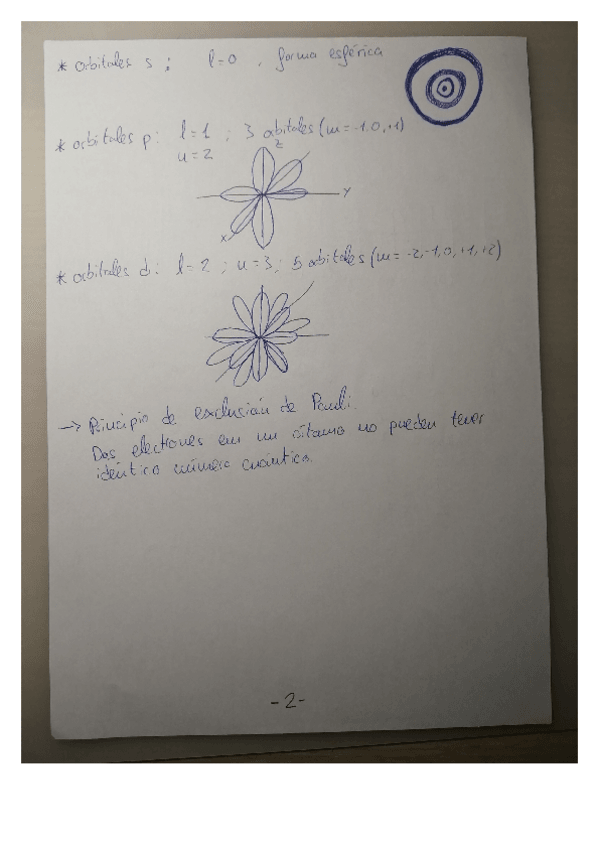 * orbitales s: l=0, forma esférica
* orbitales p: l=1; 3 orbitales (m=-1,0,+1)
n=2
z
y
x
* orbitales d: l=2; n=3; 5 orbitales (m= -2,-1,0,+1,+2)
→ Principio de exclusión de Pauli.
Dos electrones em un átomo no pueden tener
idéntico número cuántico.
-2-